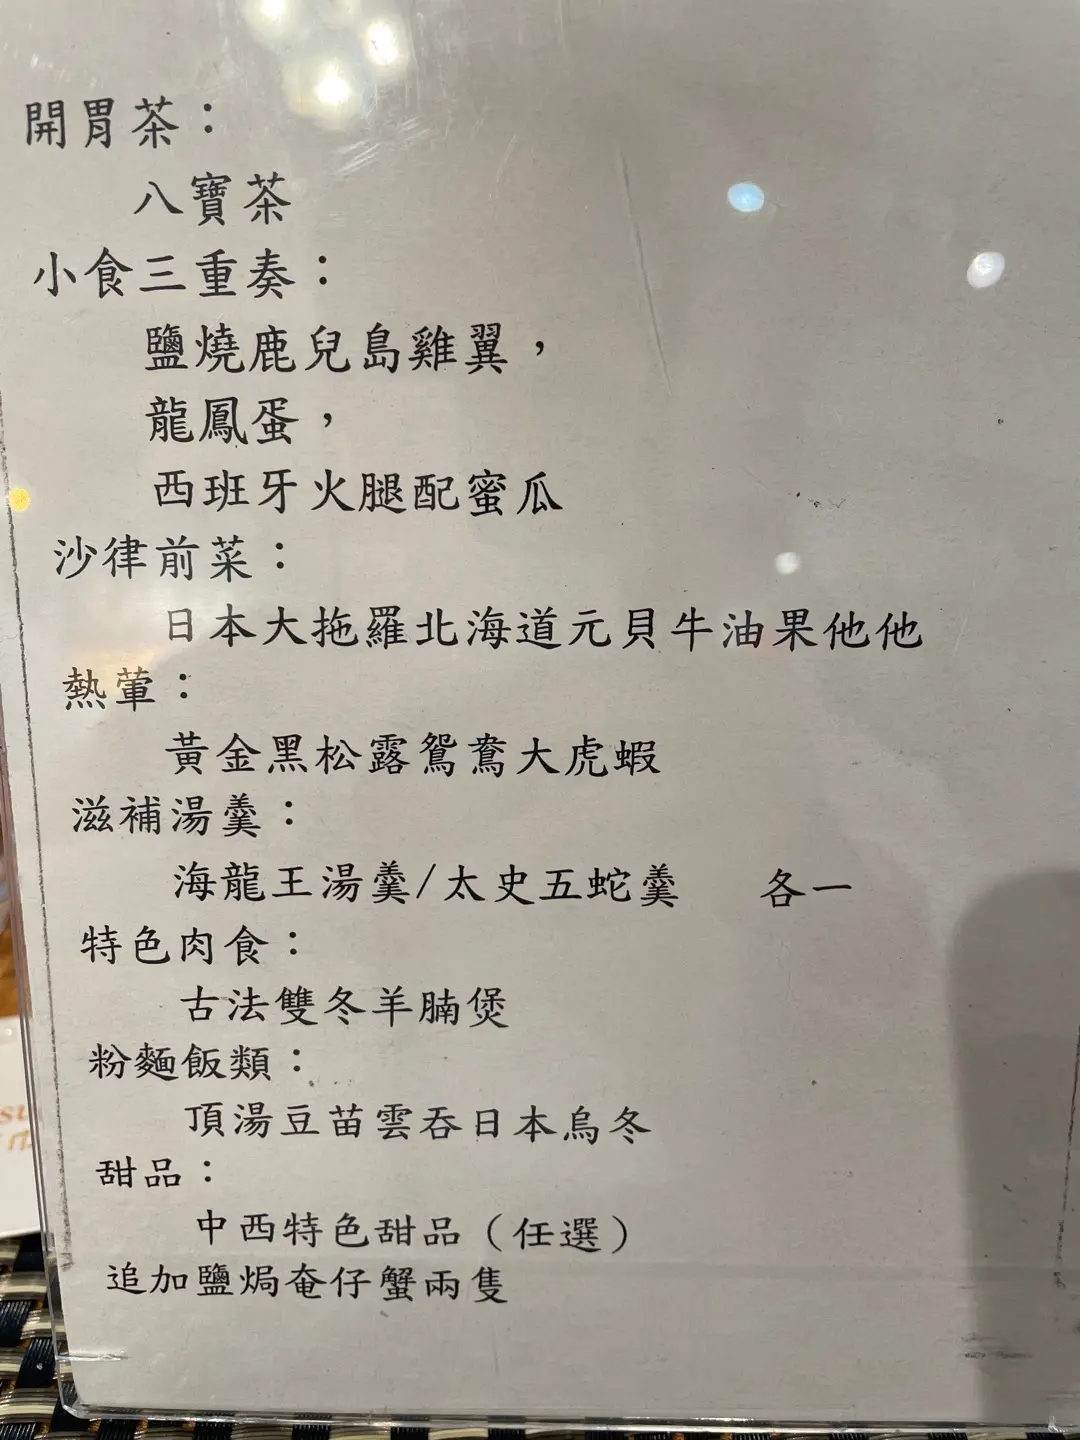 開胃茶：
八寶茶
小食三重奏：
鹽燒鹿兒島雞翼，
龍鳳蛋，
西班牙火腿配蜜瓜
沙律前菜：
日本大拖羅北海道元貝牛油果他他
熱葷：
黃金黑松露鴛鴦大虎蝦
滋補湯羹：
海龍王湯羹/太史五蛇羹 各一
特色肉食：
古法雙冬羊腩煲
粉麵飯類：
頂湯豆苗雲吞日本烏冬
甜品：
中西特色甜品（任選）
追加鹽焗奄仔蟹兩隻